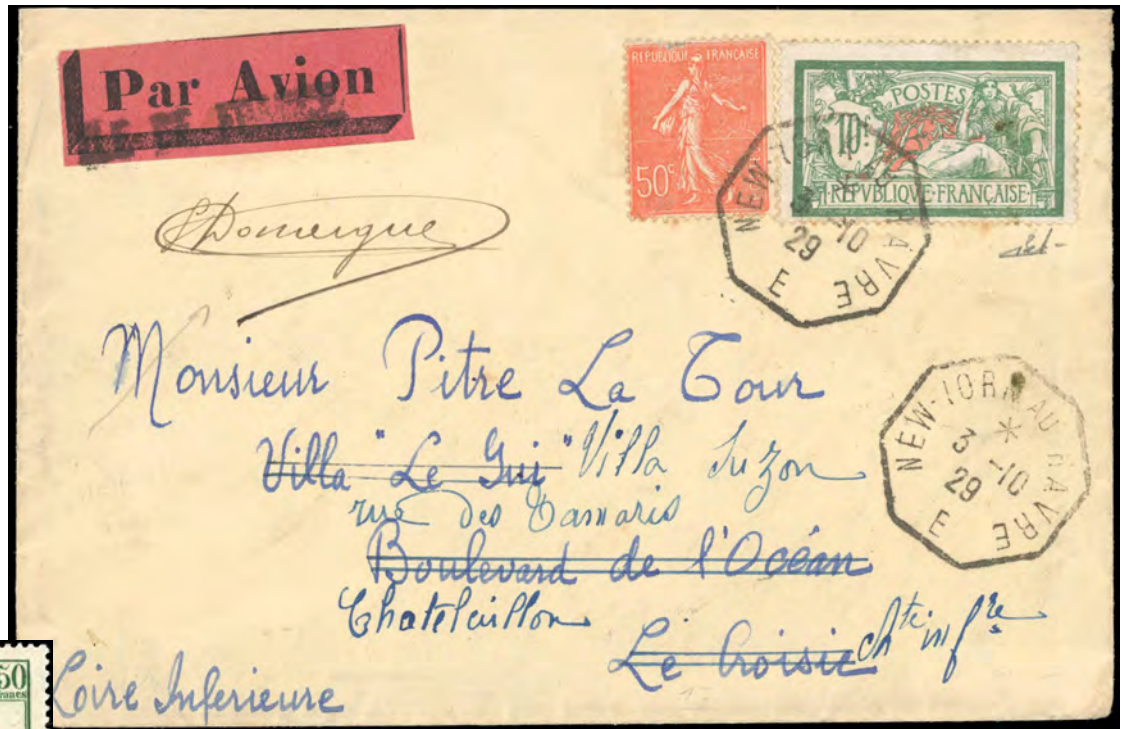 Par Avion
REPUBLIQUE FRANÇAISE
50c
POSTES
10f
REPVBLIQVE FRANÇAISE
NEW-YORK AU HAVRE
3 * -10
29
E
Domergue
Monsieur Pitre La Tour
Villa "Le Gui" Villa Suzon
rue des Tamaris
Boulevard de l'Océan
Chatelaillon
Le Croisic chte infre
Loire Inferieure
NEW-YORK AU HAVRE
3 * -10
29
E
50
francs